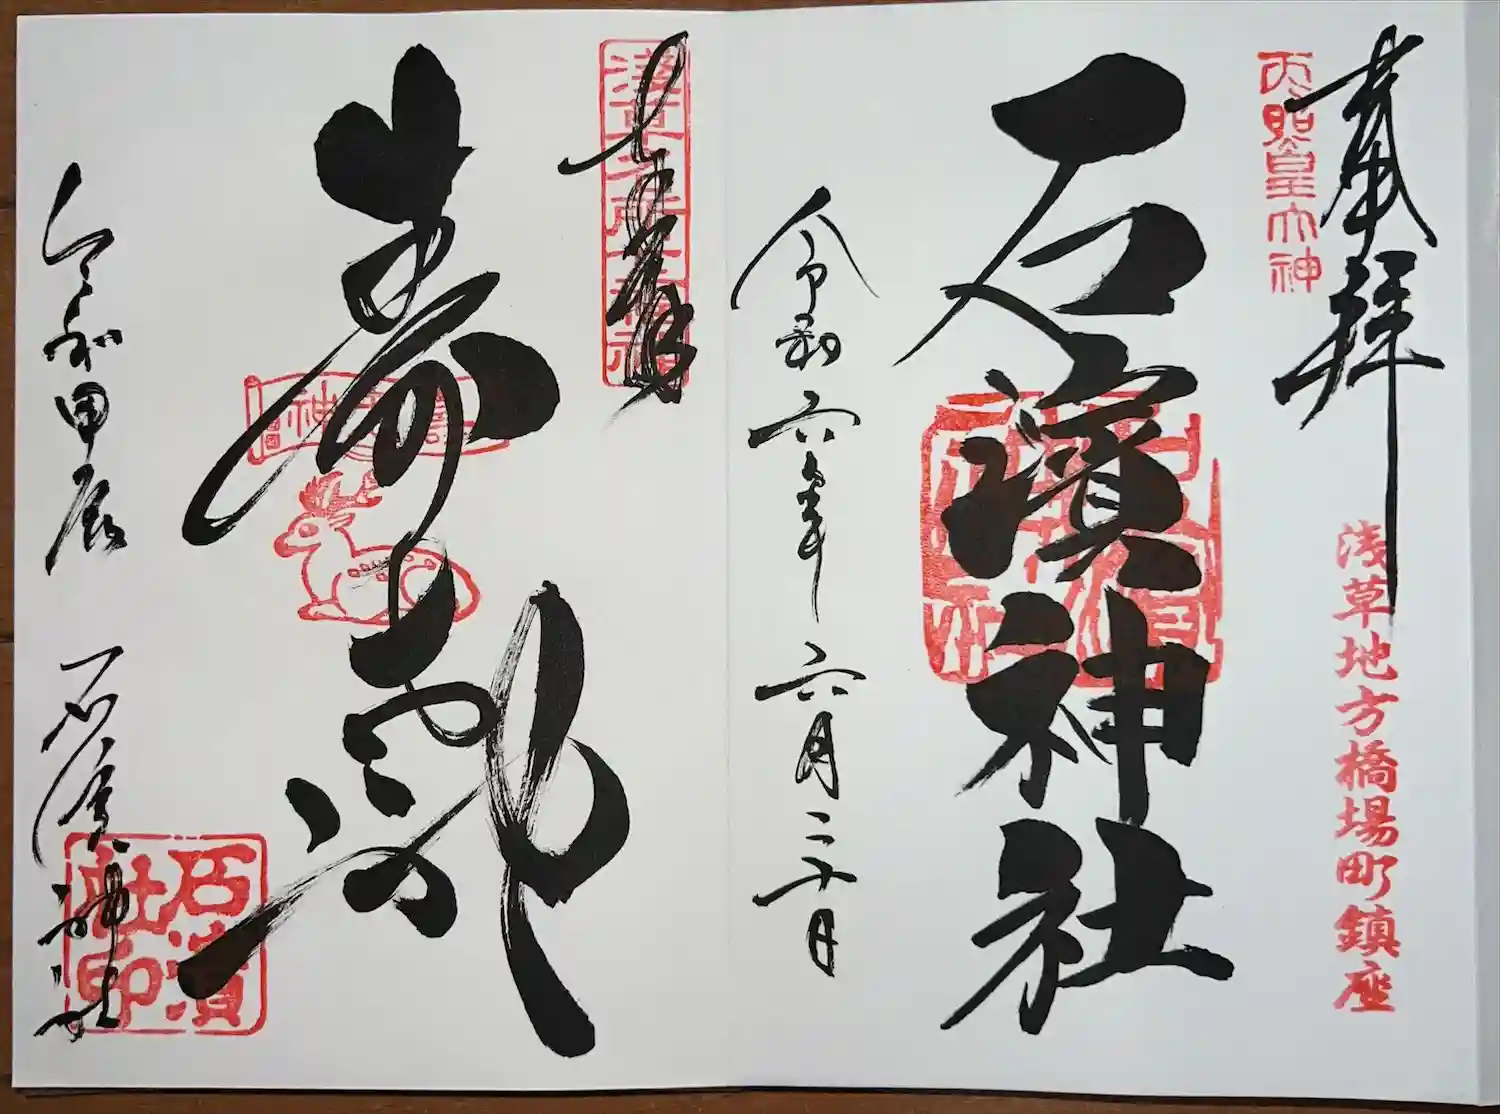 奉拝
天照皇大神
浅草地方橋場町鎮座
石濱神社
令和六年六月二十日
淺草名所七福神
壽老神
令和甲辰 石濱神社
石濱社印